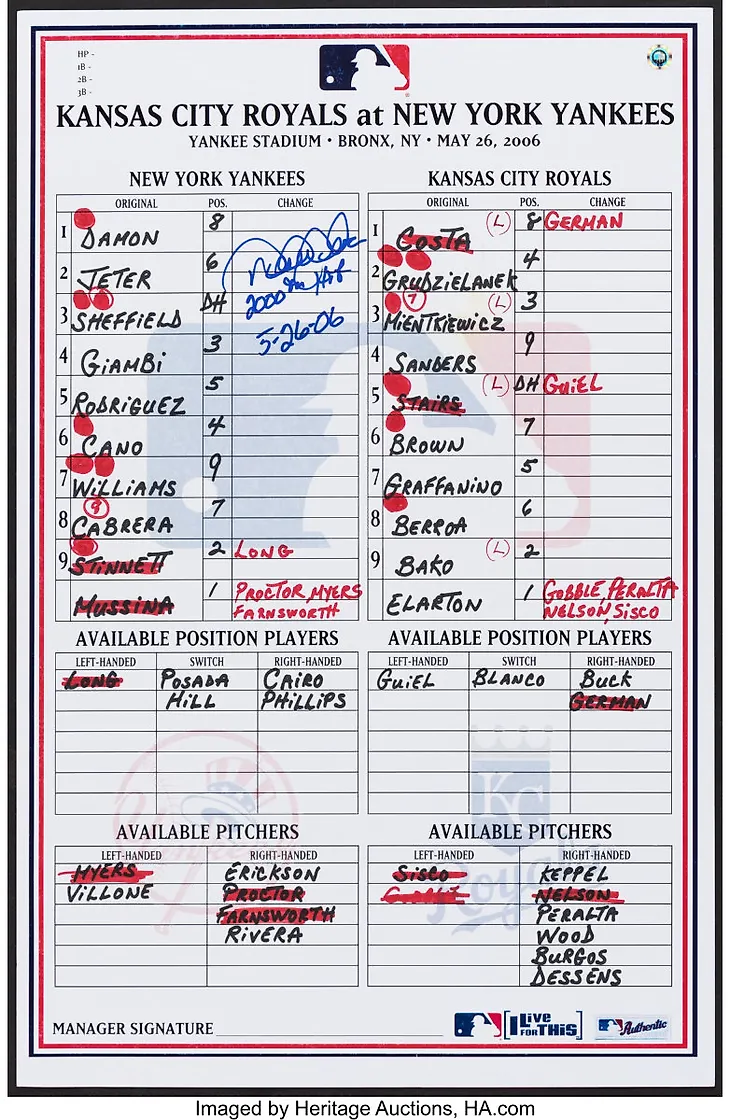 HP -
1B -
2B -
3B -
KANSAS CITY ROYALS at NEW YORK YANKEES
YANKEE STADIUM • BRONX, NY • MAY 26, 2006
NEW YORK YANKEES
ORIGINAL POS. CHANGE
1 DAMON 8
2 JETER 6
3 SHEFFIELD DH
4 GIAMBI 3
5 RODRIGUEZ 5
6 CANO 4
7 WILLIAMS 9
9
8 CABRERA 7
9 STINNETT 2 LONG
MUSSINA 1 PROCTOR, MYERS
FARNSWORTH
2000th Hit
5-26-06
KANSAS CITY ROYALS
ORIGINAL POS. CHANGE
1 COSTA (L) 8 GERMAN
2 GRUDZIELANEK 4
7
3 MIENTKIEWICZ (L) 3
4 SANDERS 9
5 STAIRS (L) DH GUIEL
6 BROWN 7
7 GRAFFANINO 5
8 BERROA 6
9 BAKO (L) 2
ELARTON 1 GOBBLE, PERALTA
NELSON, SISCO
AVAILABLE POSITION PLAYERS
LEFT-HANDED SWITCH RIGHT-HANDED
LONG POSADA CAIRO
HILL PHILLIPS
AVAILABLE POSITION PLAYERS
LEFT-HANDED SWITCH RIGHT-HANDED
GUIEL BLANCO BUCK
GERMAN
KC
Royals
AVAILABLE PITCHERS
LEFT-HANDED RIGHT-HANDED
MYERS ERICKSON
VILLONE PROCTOR
FARNSWORTH
RIVERA
AVAILABLE PITCHERS
LEFT-HANDED RIGHT-HANDED
SISCO KEPPEL
GOBBLE NELSON
PERALTA
WOOD
BURGOS
DESSENS
MANAGER SIGNATURE
I Live FOR THIS
Authentic
Imaged by Heritage Auctions, HA.com